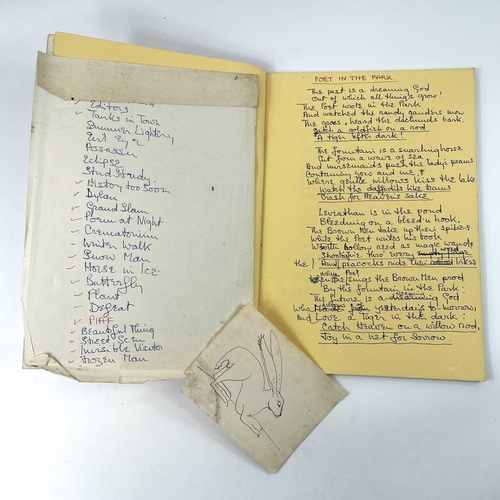 Editors
Tanks in Town
Summer Lightning
Evil Eye
Assassin
Eclipse
Stud Study.
History too Soon
Dylan
Grand Slam
Poem at Night
Crematorium
Writer Walk
Snow Man
Horse in Ice
Butterfly
Plant
Defeat
PIAF
Beautiful Thing
Street Scene
Invisible Visitor
Frozen Man
POET IN THE PARK
The past is a dreaming God
Out of which all things grow!
The Poet wots in the Park
And watched the randy ganders mow
The geese, heard the dachsunds bark.
Just a goldfish on a rod
A tiger after dark!
The fountain is a snarling horse
Cut from a wave of sea
And mermaids push the lady's prams
Containing you and me,
Where gentle willows kiss the lake
Watch the daffodils like trams
Crash for Heaven's Sake
Leviathan is in the pond
Bleeding on a bleed n hook,
The Brown Men take up their spikes
While the Poet writes his book,
hollow reed as magic wand
the peacocks ride like bikes
When Poet sings the Brown Men prod
By the fountain in the Park:
The future is a dreaming God
Who from yesterdays to-morrows,
And Love a Tiger in the dark:
Catch Heaven on a willow rod,
Joy in a net for Sorrow.